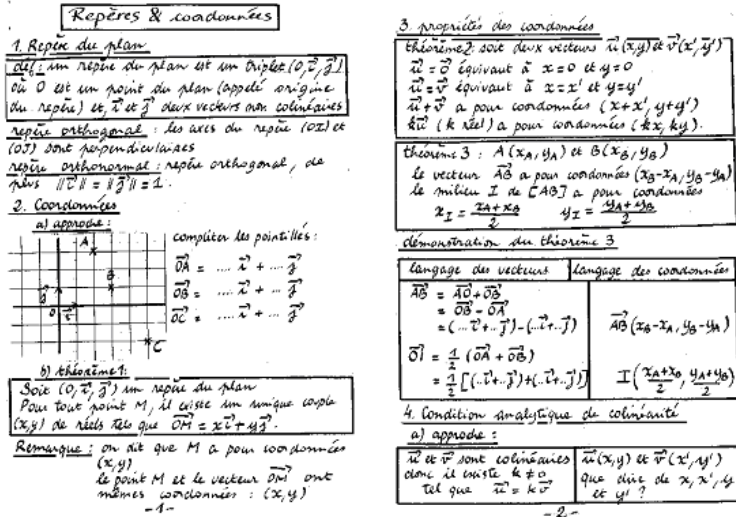 Repères & coordonnées
1. Repère du plan
déf: un repère du plan est un triplet (O, i⃗, j⃗)
où O est un point du plan (appelé origine
du repère) et, i⃗ et j⃗ deux vecteurs non colinéaires
repère orthogonal : les axes du repère (OI) et
(OJ) sont perpendiculaires
repère orthonormal : repère orthogonal, de
plus ||i⃗|| = ||j⃗|| = 1.
2. Coordonnées
a) approche :
compléter les pointillés :
OA⃗ = .... i⃗ + .... j⃗
OB⃗ = .... i⃗ + ... j⃗
OC⃗ = .... i⃗ + ... j⃗
A
B
j⃗
O
i⃗
C
b) théorème 1:
Soit (O, i⃗, j⃗) un repère du plan
Pour tout point M, il existe un unique couple
(x,y) de réels tels que OM⃗ = x i⃗ + y j⃗.
Remarque : on dit que M a pour coordonnées
(x,y)
le point M et le vecteur OM⃗ ont
mêmes coordonnées : (x,y)
-1-
3. propriétés des coordonnées
théorème 2: soit deux vecteurs u⃗(x,y) et v⃗(x',y')
u⃗ = 0⃗ équivaut à x=0 et y=0
u⃗ = v⃗ équivaut à x=x' et y=y'
u⃗+v⃗ a pour coordonnées (x+x', y+y')
ku⃗ (k réel) a pour coordonnées (kx, ky).
théorème 3 : A(xA, yA) et B(xB, yB)
le vecteur AB⃗ a pour coordonnées (xB-xA, yB-yA)
le milieu I de [AB] a pour coordonnées
xI = (xA+xB)/2 yI = (yA+yB)/2
démonstration du théorème 3
langage des vecteurs
langage des coordonnées
AB⃗ = AO⃗ + OB⃗
= OB⃗ - OA⃗
= (...i⃗+..j⃗)-(...i⃗+..j⃗)
AB⃗(xB-xA, yB-yA)
OI⃗ = 1/2 (OA⃗ + OB⃗)
= 1/2 [(..i⃗+..j⃗)+(..i⃗+..j⃗)]
I((xA+xB)/2, (yA+yB)/2)
4. Condition analytique de colinéarité
a) approche :
u⃗ et v⃗ sont colinéaires
donc il existe k ≠ 0
tel que u⃗ = k v⃗
u⃗(x,y) et v⃗(x',y')
que dire de x, x', y
et y' ?
-2-